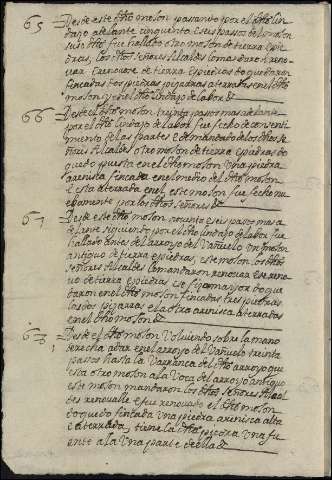 65 Desde este dho moson passando por el dho lin
dajo adelante cinquenta e seis passos del moson
suso dho fue hallado otro moson de tierra e pie
dras, los dhos señores Alcaldes lo mandaron reno
uar e renoueose de tierra e piedras do quedaron
fincadas dos piedras pizarras aterradas en el dho
moson y en el dho lindajo de labor &
66 Desde el dho moson treynta pasos mas adelante
por el dho lindajo de labor fue fecho de consenti
miento de las partes e de mandado de los dhos se
ñores Alcaldes otro moson de tierra e piedras do
quedo puesta en el dho moson vna piedra
arenisca fincada en el medio del dho moson
e esta aterrada en el este moson fue fecho nu
euamente por los dhos señores &
67 Desde este dho moson nouenta e seis pasos mas a
delante siguiendo por el dho lindajo de labor fue
hallado antes del arroyo del Vañuelo vn moson
antiguo de tierra e piedras, este moson los dhos
señores Alcaldes lo mandaron renouar e se reno
uo de tierra e piedras en su mayor do que
daron en el dho moson fincadas tres piedras
las dos pizarras e la otra arenisca aterradas
en el dho moson &
68 Desde el dho moson Voluiendo sobre la mano
derecha a dar en el arroyo del Vañuelo treinta
pasos hasta la Varranca del dho arroyo que
esta otro moson a la Voca del arroyo antiguo
este moson mandaron los dhos señores Alcal
des renoualle e fue renouado el dho moson
do quedo fincada vna piedra arenisca alta
e aterrada, tiene la dha piedra vna fu
ente a la vna parte de ella &